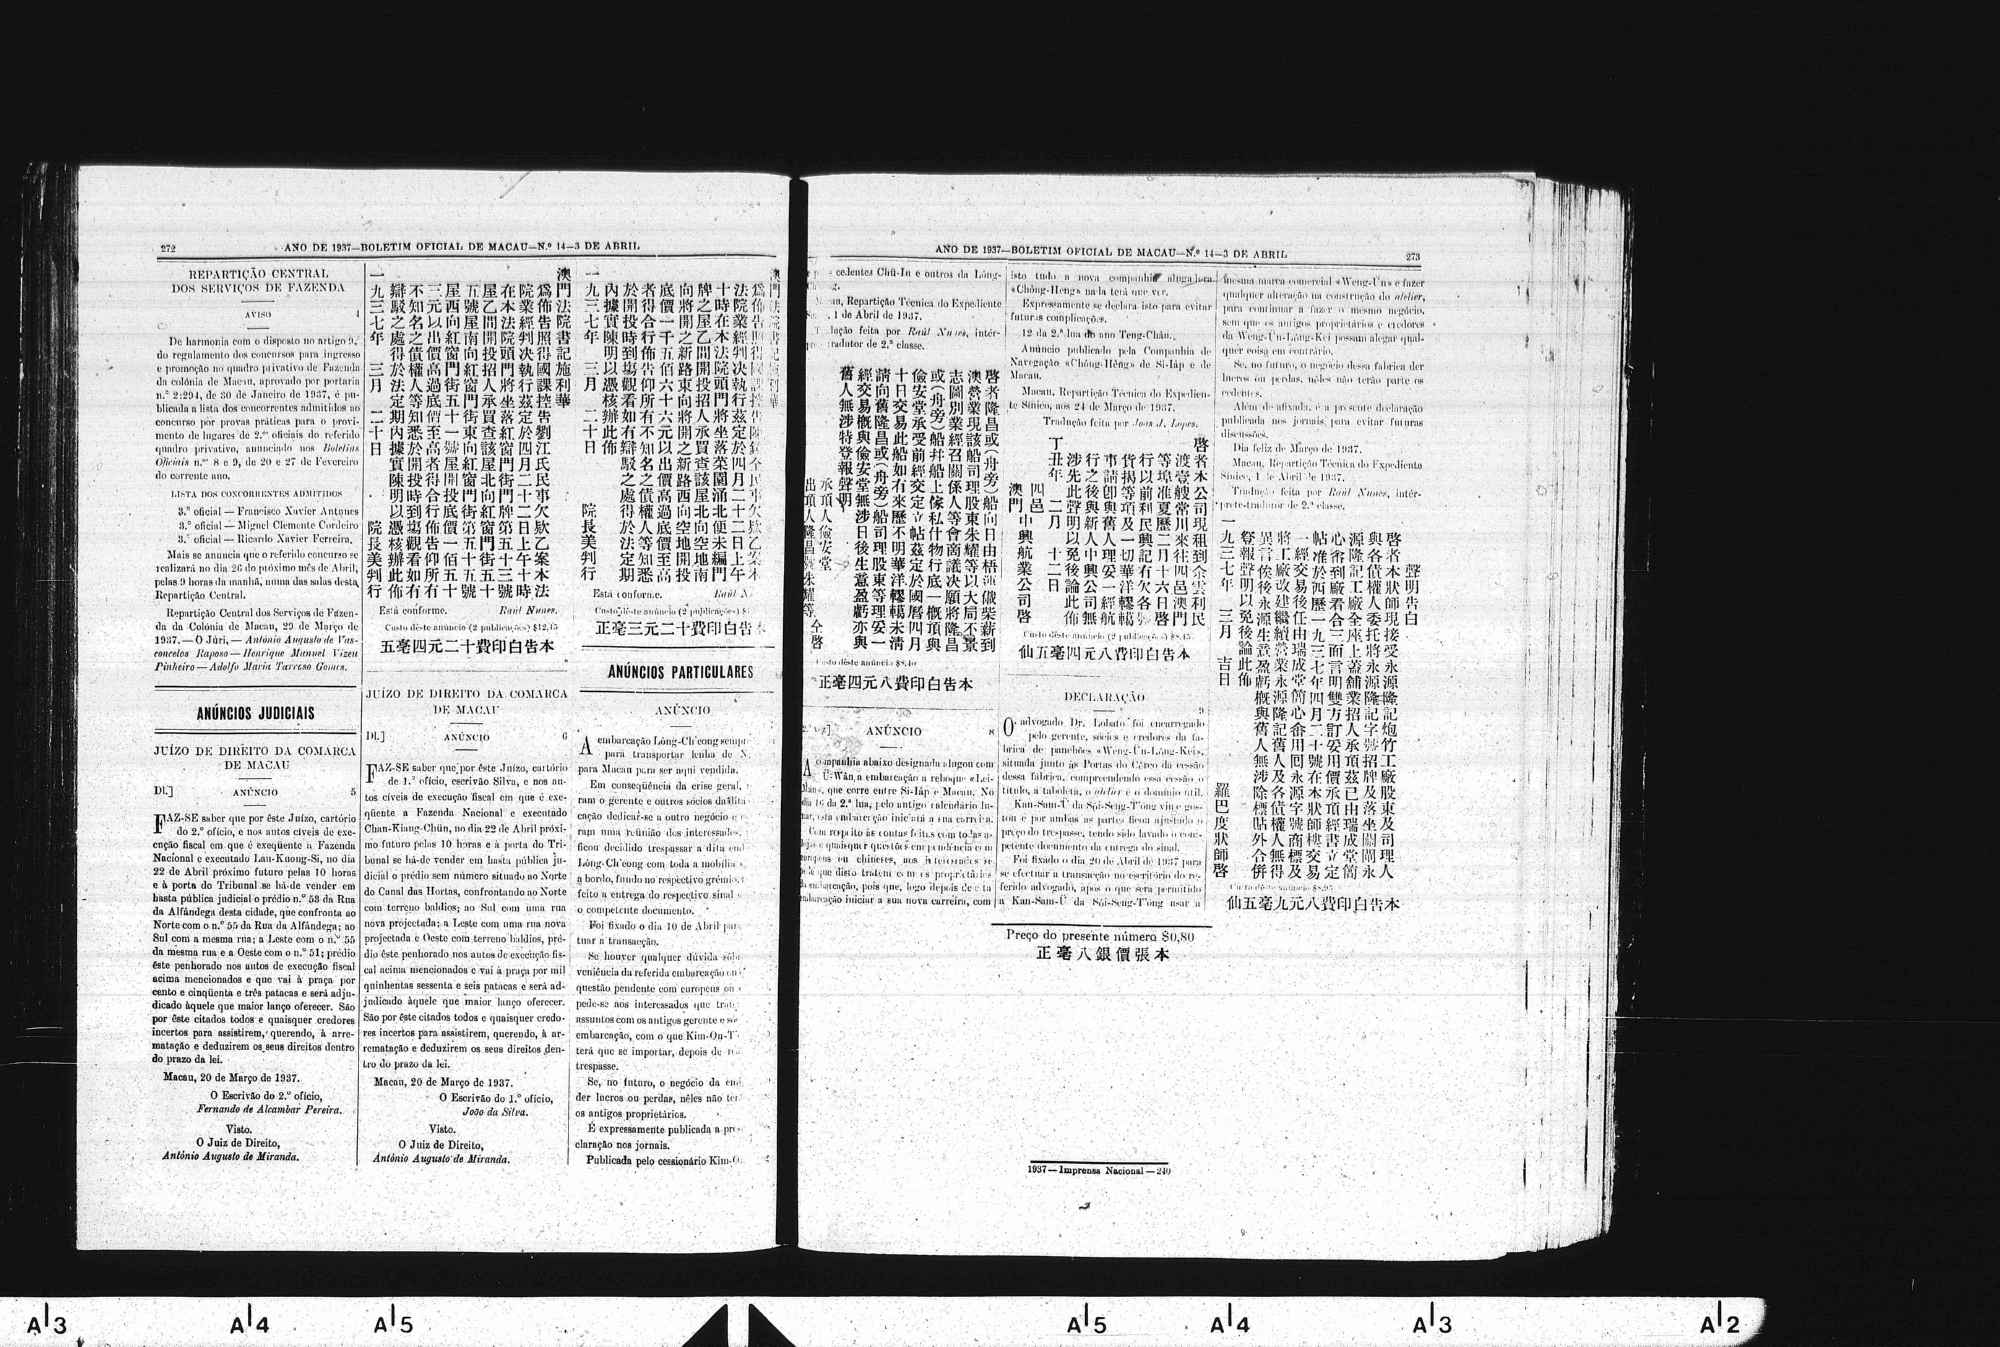 272
ANO DE 1937—BOLETIM OFICIAL DE MACAU—N.º 14—3 DE ABRIL
REPARTIÇÃO CENTRAL
DOS SERVIÇOS DE FAZENDA
AVISO 4
De harmonia com o disposto no artigo 9.º
do regulamento dos concursos para ingresso
e promoção no quadro privativo de Fazenda
da colónia de Macau, aprovado por portaria
n.º 2:294, de 30 de Janeiro de 1937, é pu-
blicada a lista dos concorrentes admitidos ao
concurso por provas práticas para o provi-
mento de lugares de 2.ºs oficiais do referido
quadro privativo, anunciado nos Boletins
Oficiais n.ºs 8 e 9, de 20 e 27 de Fevereiro
do corrente ano.
LISTA DOS CONCORRENTES ADMITIDOS
3.º oficial — Francisco Xavier Antunes
3.º oficial — Miguel Clemente Cordeiro
3.º oficial — Ricardo Xavier Ferreira.
Mais se anuncia que o referido concurso se
realizará no dia 26 do próximo mês de Abril,
pelas 9 horas da manhã, numa das salas desta
Repartição Central.
Repartição Central dos Serviços de Fazen-
da da Colónia de Macau, 29 de Março de
1937. — O Júri, — António Augusto de Vas-
concelos Raposo — Henrique Manuel Vizeu
Pinheiro — Adolfo Maria Tavesso Gomes.
ANÚNCIOS JUDICIAIS
JUÍZO DE DIREITO DA COMARCA
DE MACAU
D1.] ANÚNCIO 5
FAZ-SE saber que por êste Juízo, cartório
do 2.º ofício, e nos autos cíveis de exe-
cução fiscal em que é exequente a Fazenda
Nacional e executado Lau-Kuong-Si, no dia
22 de Abril próximo futuro pelas 10 horas
e à porta do Tribunal se há-de vender em
hasta pública judicial o prédio n.º 53 da Rua
da Alfândega desta cidade, que confronta ao
Norte com o n.º 55 da Rua da Alfândega; ao
Sul com a mesma rua; a Leste com o n.º 55
da mesma rua e a Oeste com o n.º 51; prédio
êste penhorado nos autos de execução fiscal
acima mencionados e que vai à praça por
cento e cinqüenta e três patacas e será adju-
dicado àquele que maior lanço oferecer. São
por êste citados todos e quaisquer credores
incertos para assistirem, querendo, à arre-
matação e deduzirem os seus direitos dentro
do prazo da lei.
Macau, 20 de Março de 1937.
O Escrivão do 2.º ofício,
Fernando de Alcambar Pereira.
Visto.
O Juiz de Direito,
António Augusto de Miranda.
澳門法院書記施利華
爲佈告照得國課控告劉江氏民事欠欵乙案本法
院業經判决執行茲定於四月二十二日上午十時
在本法院頭門將坐落紅窗門街門牌第五十三號
屋乙間開投招人承買查該屋北向紅窗門街五十
五號屋南向紅窗門街東向紅窗門街第五十五號
屋西向紅窗門街五十一號屋開投底價一佰五十
三元以出價高過底價至高者得合行佈告仰所有
不知名之債權人等知悉於開投時到塲觀看如有
辯駁之處得於法定期內據實陳明以憑核辦此佈
一九三七年 三月 二十日 院長美判行
Está conforme. Raúl Nunes.
Custo dêste anúncio (2 publicações) $12,45
本告白印費十二元四毫五
JUÍZO DE DIREITO DA COMARCA
DE MACAU
D1.] ANÚNCIO 6
FAZ-SE saber que por êste Juízo, cartório
de 1.º ofício, escrivão Silva, e nos au-
tos cíveis de execução fiscal em que é exe-
qüente a Fazenda Nacional e executado
Chan-Kiang-Chün, no dia 22 de Abril próxi-
mo futuro pelas 10 horas e à porta do Tri-
bunal se há-de vender em hasta pública ju-
dicial o prédio sem número situado no Norte
do Canal das Hortas, confrontando ao Norte
com terreno baldios; ao Sul com uma rua
nova projectada; a Leste com uma rua nova
projectada e Oeste com terreno baldios, pré-
dio êste penhorado nos autos de execução fis-
cal acima mencionados e vai à praça por mil
quinhentas sessenta e seis patacas e será ad-
judicado àquele que maior lanço oferecer.
São por êste citados todos e quaisquer credo-
res incertos para assistirem, querendo, à ar-
rematação e deduzirem os seus direitos den-
tro do prazo da lei.
Macau, 20 de Março de 1937.
O Escrivão do 1.º ofício,
João da Silva.
Visto.
O Juiz de Direito,
António Augusto de Miranda.
澳門法院書記施利華
法院業經判决執行茲定於四月二十二日上午
十時在本法院頭門將坐落菜園涌北便未編門
牌之屋乙間開投招人承買查該屋北向空地南
向將開之新路東向將開之新路西向空地開投
底價一千五佰六十六元以出價高過底價至高
者得合行佈告仰所有不知名之債權人等知悉
於開投時到塲觀看如有辯駁之處得於法定期
內據實陳明以憑核辦此佈
一九三七年 三月 二十日 院長美判行
Está conforme. Raúl N
Custo dêste anúncio (2 publicações)
本告白印費十二元三毫正
ANÚNCIOS PARTICULARES
ANÚNCIO
A embarcação Lóng-Ch'eong
para transportar lenha de
para Macau para ser aqui vendida.
Em conseqüência da crise geral,
ram o gerente e outros sócios da
cação dedicar-se a outro negócio e
ram uma reünião dos interessados,
ficou decidido trespassar a dita
Lóng-Ch'eong com toda a mobília
a bordo, fundo no respectivo grémio,
feito a entrega do respectivo sinal
o competente documento.
Foi fixado o dia 10 de Abril para
tuar a transacção.
Se houver qualquer dúvida
veniência da referida embarcação ou
questão pendente com europeus ou
pede-se aos interessados que
assuntos com os antigos gerente e
embarcação, com o que Kim-On-T
terá que se importar, depois de
trespasse.
Se, no futuro, o negócio da
der lucros ou perdas, nêles não
os antigos proprietários.
É expressamente publicada a
claração nos jornais.
Publicada pelo cessionário Kim-O
ANO DE 1937—BOLETIM OFICIAL DE MACAU—N.º 14—3 DE ABRIL
273
cedentes Chü-Iu e outros da Lóng-
Repartição Técnica do Expediente
1 de Abril de 1937.
feita por Raúl Nunes, intér-
tradutor de 2.ª classe.
啓者隆昌或(舟旁)船向日由梧運儎柴薪到
澳營業現該船司理股東朱耀等以大局不景
志圖別業經召關係人等會商議决願將隆昌
或(舟旁)船并船上傢私什物行底一概頂與
儉安堂承受經交定立帖茲定於國曆四月
十日交易此船如有來歷不明華洋轇轕未清
請向舊隆昌或(舟旁)船司理股東等理妥一
經交易概與儉安堂無涉日後生意盈虧亦與
舊人無涉特登報聲明
承頂人儉安堂
出頂人隆昌號朱耀等仝啓
Custo dêste anúncio $8,40
本告白印費八元四毫正
ANÚNCIO 8
A Companhia abaixo designada alugou com
Ü-Wân, a embarcação a reboque «Lei-
Man», que corre entre Si-Iáp e Macau. No
dia 16 da 2.ª lua, pelo antigo calendário lu-
nar, esta embarcação iniciará a sua carreira.
Com respeito às contas feitas com todas a
e quaisquer questões em pendência com
europeus ou chineses, aos interessados se
que disto tratem com os proprietários
da embarcação, pois que, logo depois de esta
embarcação iniciar a sua nova carreira, com
isto tudo a nova companhia alugadora
«Chông-Heng» nada terá que ver.
Expressamente se declara isto para evitar
futuras complicações.
12 da 2.ª lua do ano Teng-Cháu.
Anúncio publicado pela Companhia de
Navegação «Chông-Hêng» de Si-Iáp e de
Macau.
Macau, Repartição Técnica do Expedien-
te Sínico, aos 24 de Março de 1937.
Tradução feita por Joas J. Lopes.
啓者本公司現租到余雲利民
渡壹艘常川來往四邑澳門
等埠准夏歷二月十六日啓
行以前利民興記有欠各
貨揭等項及一切華洋轇轕
事請卽與舊人理妥一經航
行之後與新人中興公司無
涉先此聲明以免後論此佈
丁丑年 二月 十二日
四邑
澳門 中興航業公司啓
Custo dêste anúncio (2 publicações) $8,45
本告白印費八元四毫五仙
DECLARAÇÃO
9
O advogado Dr. Lobato foi encarregado
pelo gerente, sócios e credores da fa-
brica de panchões «Weng-Ün-Lông-Kei»,
situada junto às Portas do Cêrco da cessão
dessa fábrica, compreendendo essa cessão o
título, a taboleta, o atelier e o domínio útil.
Kan-Sam-Ü da Sôi-Seng-T'ông vin e gos-
tou e por ambas as partes ficou ajustado o
preço do trespasse, tendo sido lavado o com-
petente documento da entrega do sinal.
Foi fixado o dia 20 de Abril de 1937 para
se efectuar a transacção no escritório do re-
ferido advogado, após o que será permitido
a Kan-Sam-Ü da Sôi-Seng-T'ông usar a
mesma marca comercial «Weng-Ün» e fazer
qualquer alteração na construção do atelier,
para continuar a fazer o mesmo negócio,
sem que os amigos proprietários e credores
da Weng-Ün-Lông-Kei possam alegar qual-
quer coisa em contrário.
Se, no futuro, o negócio dessa fábrica der
lucros ou perdas, nêles não terão parte os
cedentes.
Além de afixada, é a presente declaração
publicada nos jornais, para evitar futuras
discussões.
Dia feliz de Março de 1937.
Macau, Repartição Técnica do Expediente
Sínico, 1 de Abril de 1937.
Tradução feita por Raúl Nunes, intér-
prete-tradutor de 2.ª classe.
聲明告白
啓者本狀師現接受永源隆記炮竹工廠股東及司理人
與各債權人委托將永源隆記字號招牌及落坐關閘永
源隆記工廠全座上蓋舖業招人承頂茲已由瑞成堂簡
心畬到廠看合三面言明雙方訂妥用價承頂經書立定
帖准於西歷一九三七年四月二十號在本狀師樓交易
一經交易後任由瑞成堂簡心畬用囘永源字號商標及
將工廠改建繼續營業永源隆記舊人及各債權人無得
異言俟後永源生意盈虧概與舊人無涉除標貼外合併
登報聲明以免後論此佈
一九三七年 三月 吉日
羅巴度狀師啓
Custo dêste anúncio $8,95
本告白印費八元九毫五仙
Preço do presente número $0,80
本張價銀八毫正
1937 — Imprensa Nacional — 240
A3
A4
A5
A5
A4
A3
A2